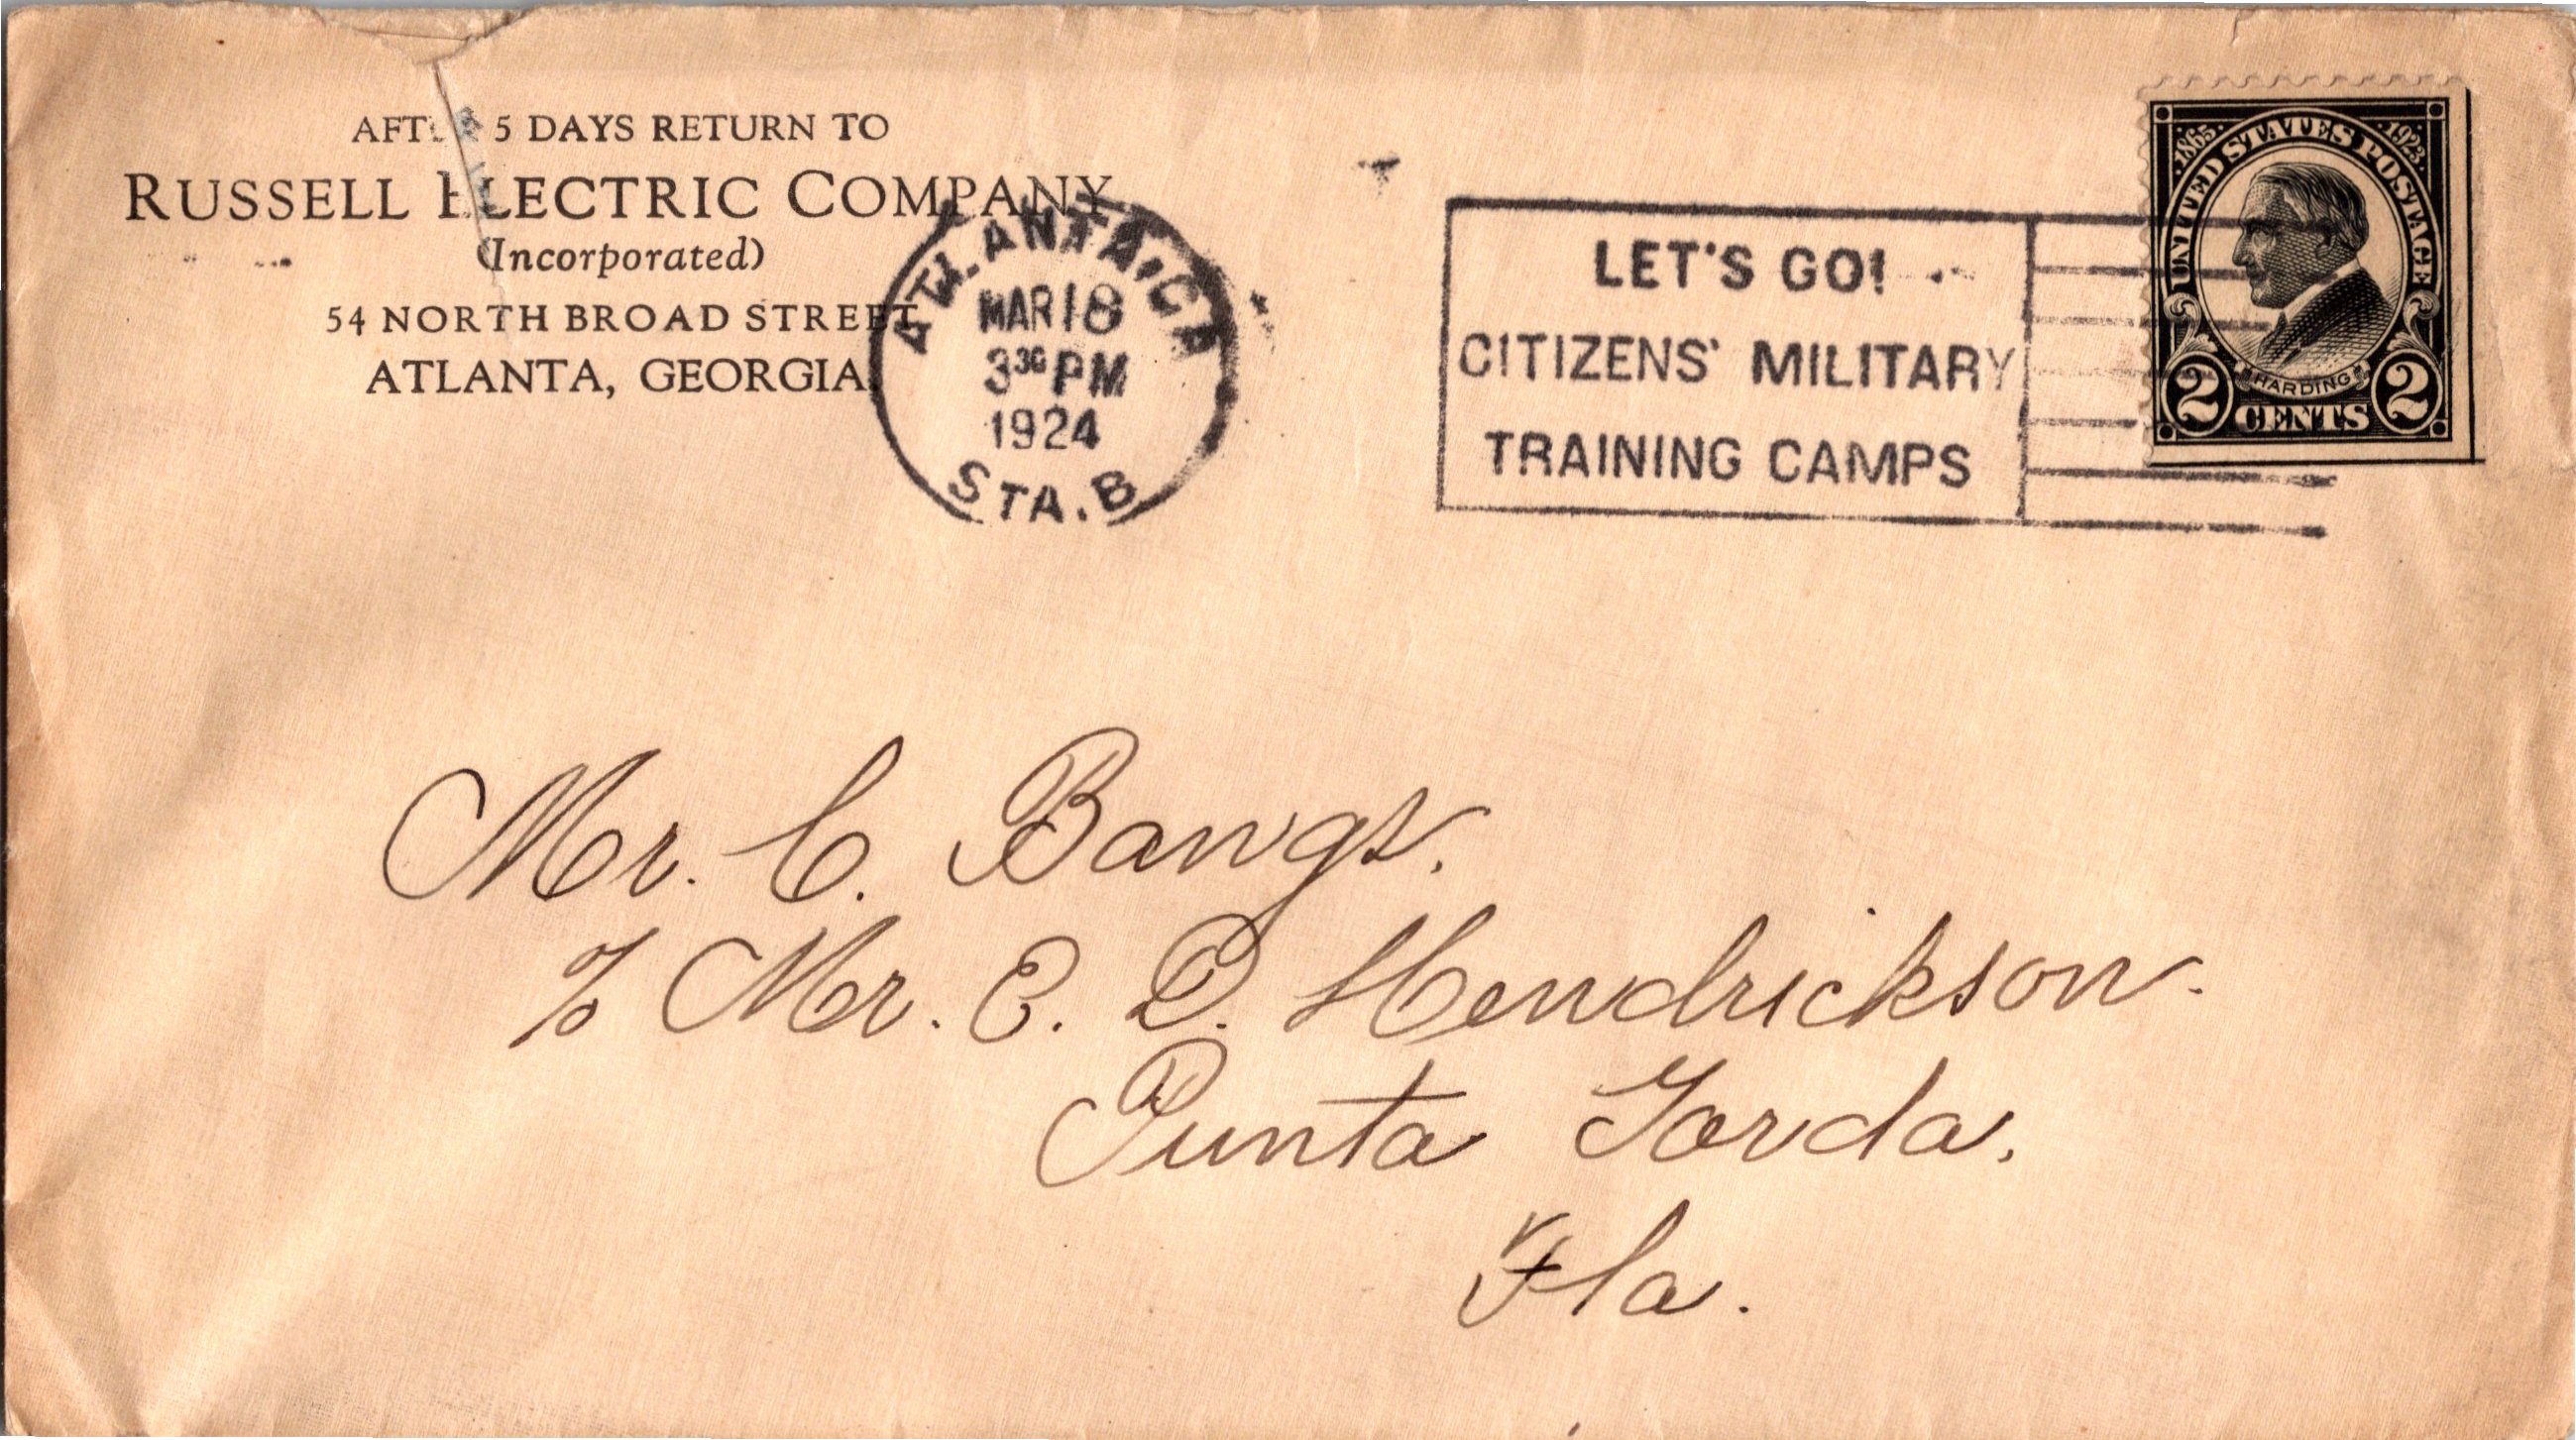 AFTER 5 DAYS RETURN TO
RUSSELL ELECTRIC COMPANY
(Incorporated)
54 NORTH BROAD STREET
ATLANTA, GEORGIA.
ATLANTA, GA
MAR 18
3 30 PM
1924
STA. B
LET'S GO!
CITIZENS' MILITARY
TRAINING CAMPS
1865 1923
UNITED STATES POSTAGE
HARDING
2 CENTS 2
Mr. C. Bangs.
% Mr. E. D. Hendrickson.
Punta Gorda,
Fla.